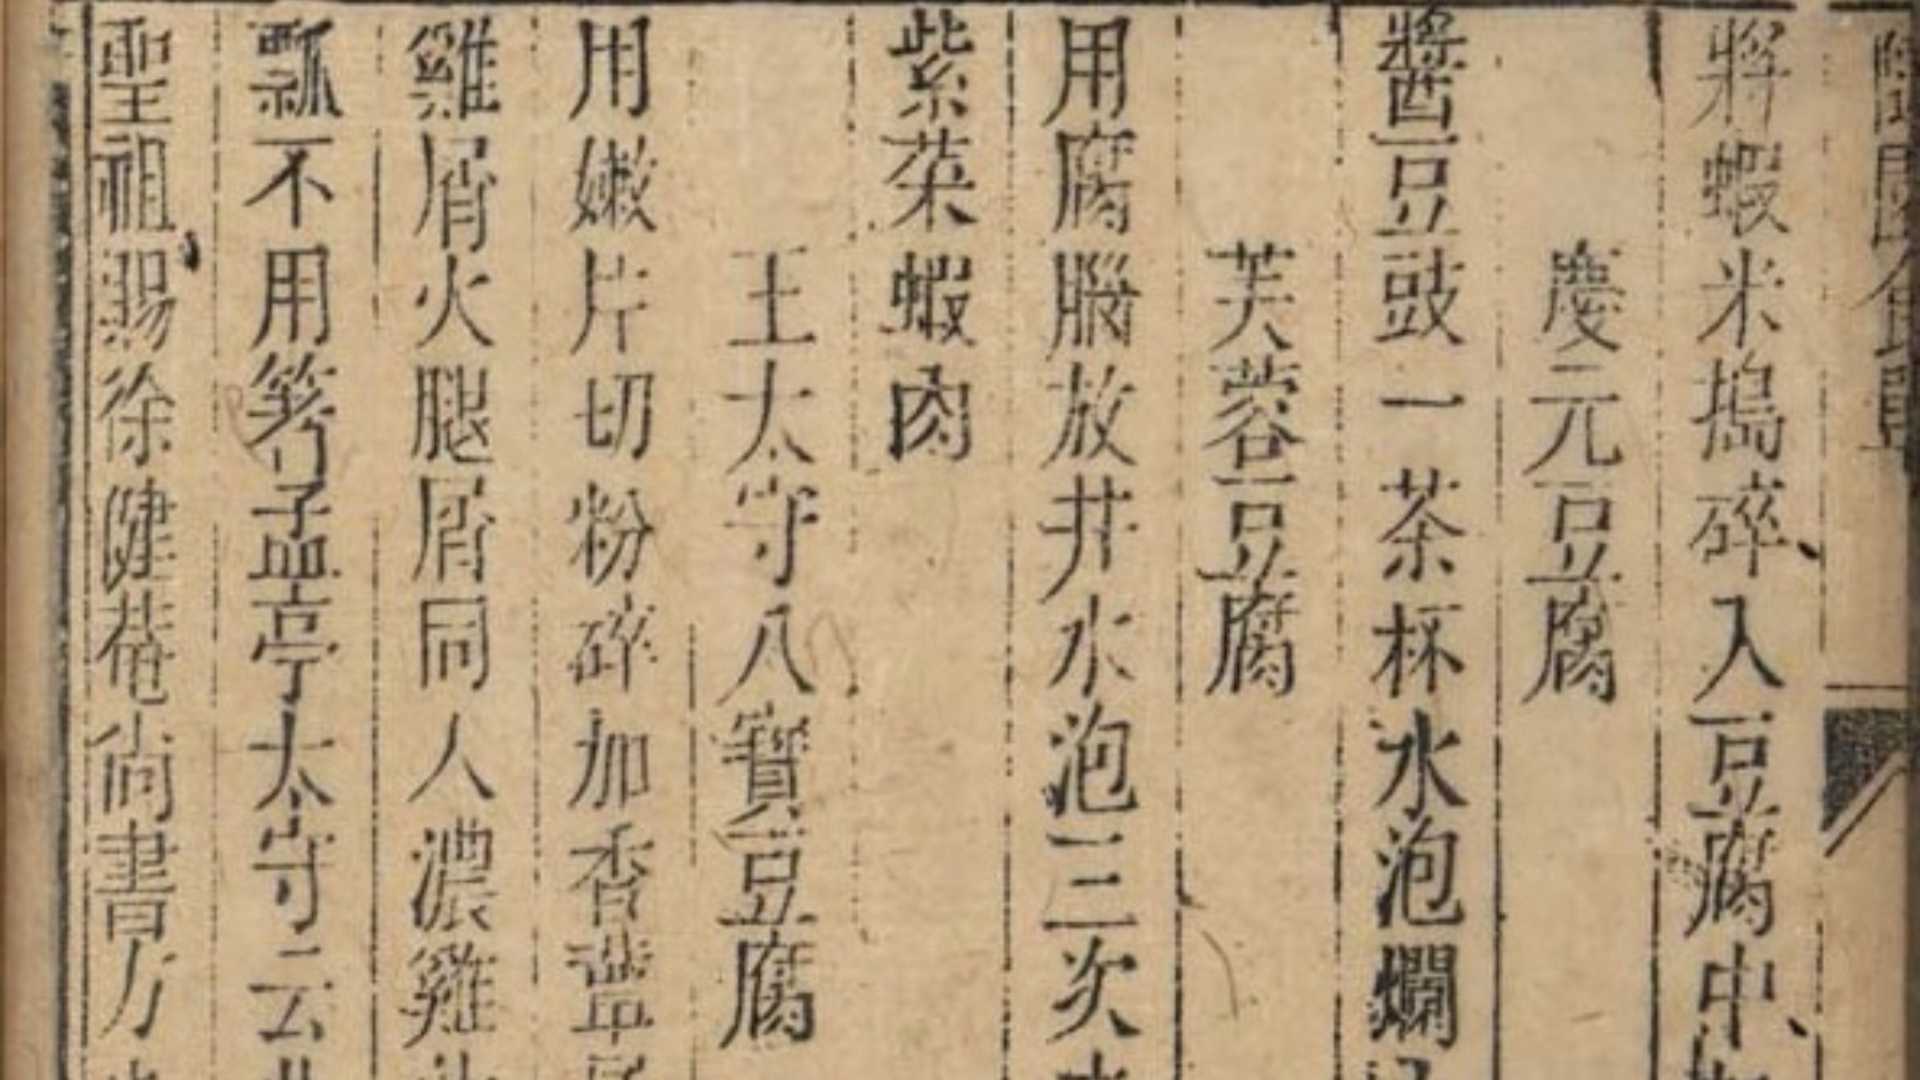 隨園食單
將蝦米搗碎入豆腐中
慶元豆腐
將豆豉一茶杯水泡爛
芙蓉豆腐
用腐腦放井水泡三次
紫菜蝦肉
王太守八寶豆腐
用嫩片切粉碎加香蕈
雞屑火腿屑同入濃雞
瓢不用箸孟亭太守云
聖祖賜徐健菴尚書方